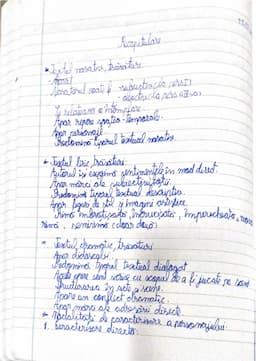 Recapitulare
* Textul narativ, trăsături:
Apar:
Naratorul poate fi - subiectiv (la pers I)
- obiectiv (la pers a III-a)
Se relatează o întâmplare.
Apar repere spațio-temporale.
Apar personaje.
Predomină tiparul textual narativ.
* Textul liric, trăsături:
Autorul își exprimă sentimentele în mod direct.
Apar mărci ale subiectivității.
Predomină tiparul textual descriptiv.
Apar figuri de stil și imagini artistice.
Rimă îmbrățișată, încrucișată, împerecheată,
rimă,
* Textul dramatic, trăsături
Apar didascalii.
Predomină tiparul textual dialogat.
Aceste opere sunt scrise cu scopul de a fi jucate pe scenă
Structurarea în acte și scene.
Apare un conflict dramatic.
Apar mărci ale adresării directe.
* Modalități de caracterizare a personajului:
1. Caracterizare directă: